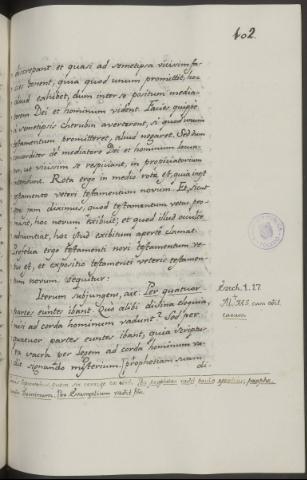 102.
discrepant et quasi ad semetipsa vicissim fa-
cies tenent, quia quod unum promittit, hoc
aliud exhibet, dum inter se positum media-
torem Dei et hominum vident. Facies quippe
a semetipsis Cherubin averterent, si quod unum
testamentum promitteret, aliud negaret. Sed dum
concorditer de mediatore Dei et hominum loqun-
tur, ut vicissim se respiciant, in propitiatorium
intendunt. Rota ergo in medio rotæ est, quia inest
testamento veteri testamentum novum. Et, sicut
jam diximus, quod testamentum vetus pro-
misit, hoc novum exibuit; et quod illud occulte
adnuntiat, hoc istud exibitum aperte clamat.
Profetia ergo testamenti novi testamentum ve-
tus est, et expositio testamenti veteris testamen-
tum novum. Sequitur:
Iterum subjungens, ait: Per quatuor
partes euntes ibant. Quo alibi divina eloquia,
nisi ad corda hominum vadunt? Sed per
quatuor partes euntes ibant, quia Scriptu-
ra sacra per legem ad corda hominum va-
dit signando mysterium; prophetiam suam
di-
Ezech. 1. 17